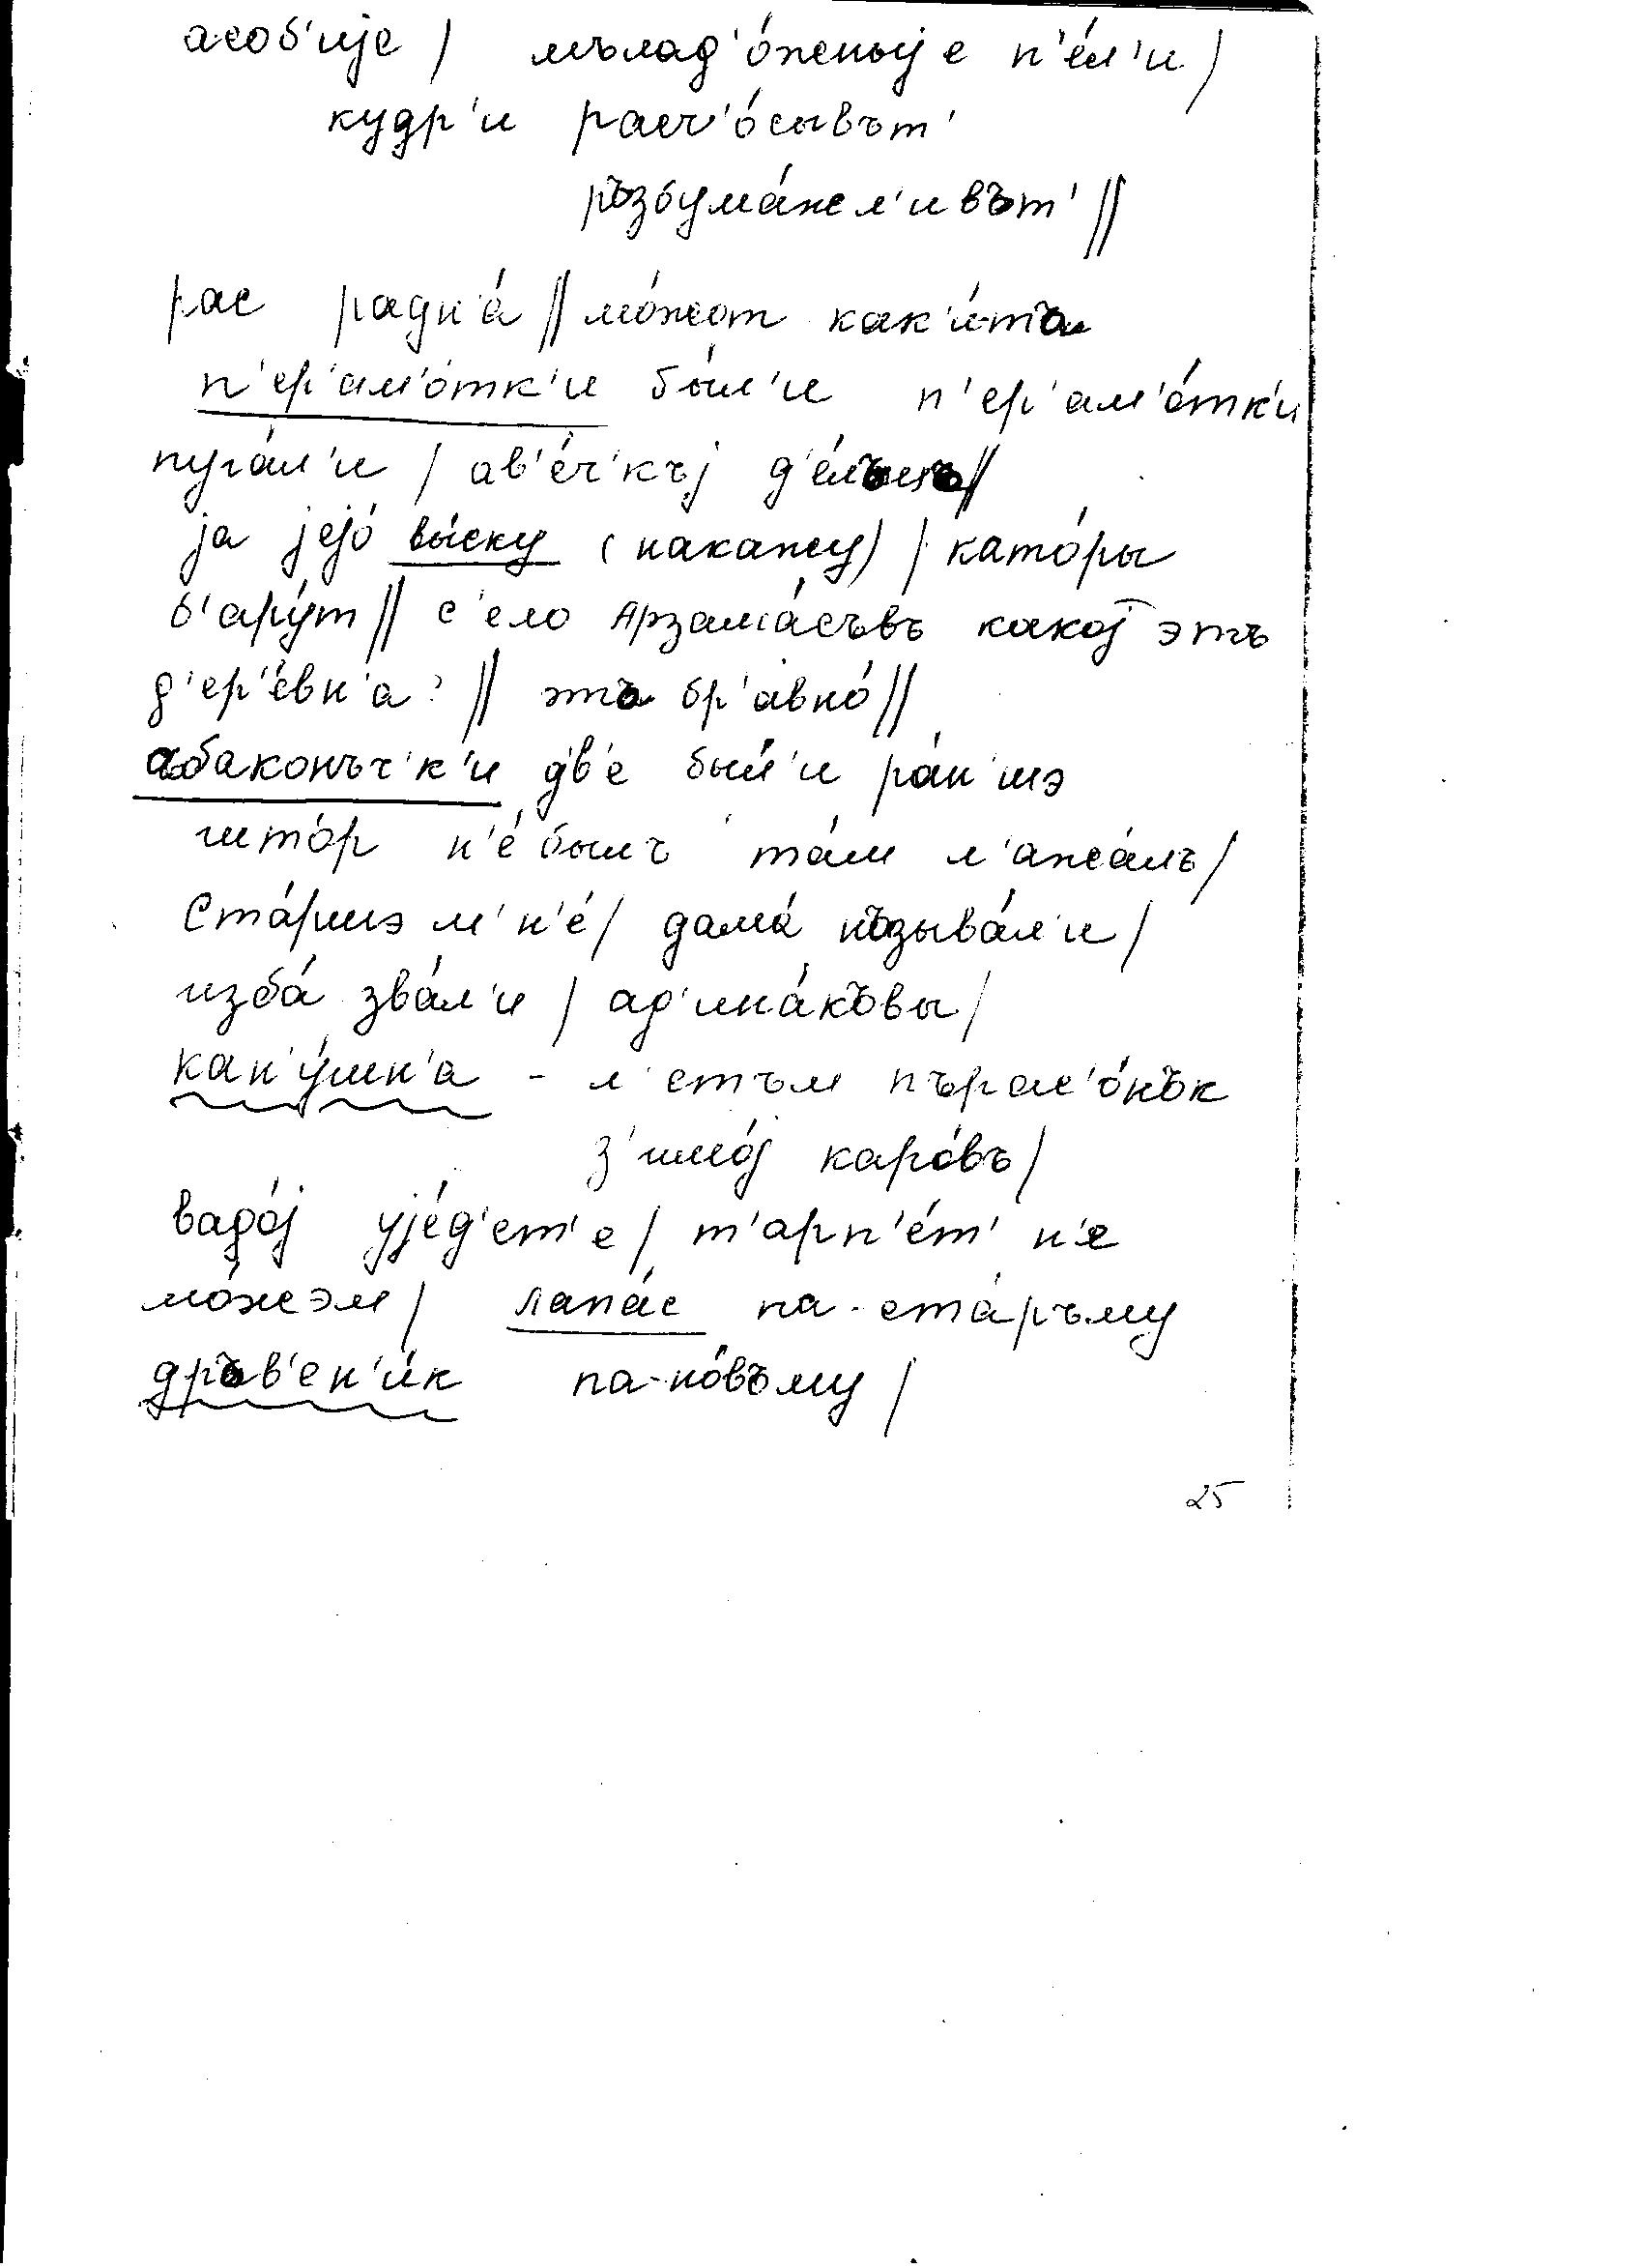 асоб'ије / мълад'о́жеными је п'е́л'и /
кудр'и расч'о́сывът'
ръзбума́жл'ивът' //
рас радн'а́ // мо́жот как'и́тъ
п'ер'ам'о́тк'и бы́л'и п'ер'ам'о́тк'и
пуга́л'и / ав'е́ч'къј д'е́лъиз //
ја јејо́ вы́ску (накажу) / като́ры
б'ару́т // с'ело Арзама́съвъ какој этъ
д'ер'е́вн'а? // этъ бр'авно́ //
абаконъч'к'и дв'е бы́л'и ра́н'шэ
што́р н'е́ былъ та́м л'ажа́лъ /
Ста́ршэ м'н'е́ / дама́ нъзыва́л'и /
изба́ зва́л'и / ад'ина́къвы /
кан'у́шн'а - л'етъм пърас'о́нък
з'имо́ј каро́въ /
вадо́ј ује́д'ет'е / т'арп'е́т' н'е
мо́жэм / лапа́с па-ста́ръму
дръв'ен'и́к па-но́въму /
25